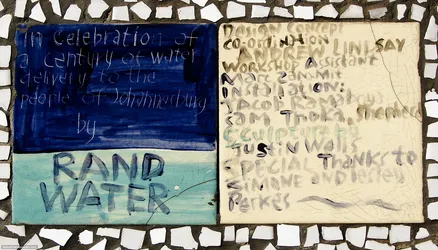 in celebration of
a century of water
delivery to the
people of Johannesburg
by
RAND
WATER
Design concept
co-ordination
ANDREW LINDSAY
Workshop Assistant
Marc Zammit
Installation:
Jacob Ramaboya
Sam Thoka, Shepherd
Sculpture by
Justin Walls
SPECIAL Thanks to
Simone and Lesley
Perkes